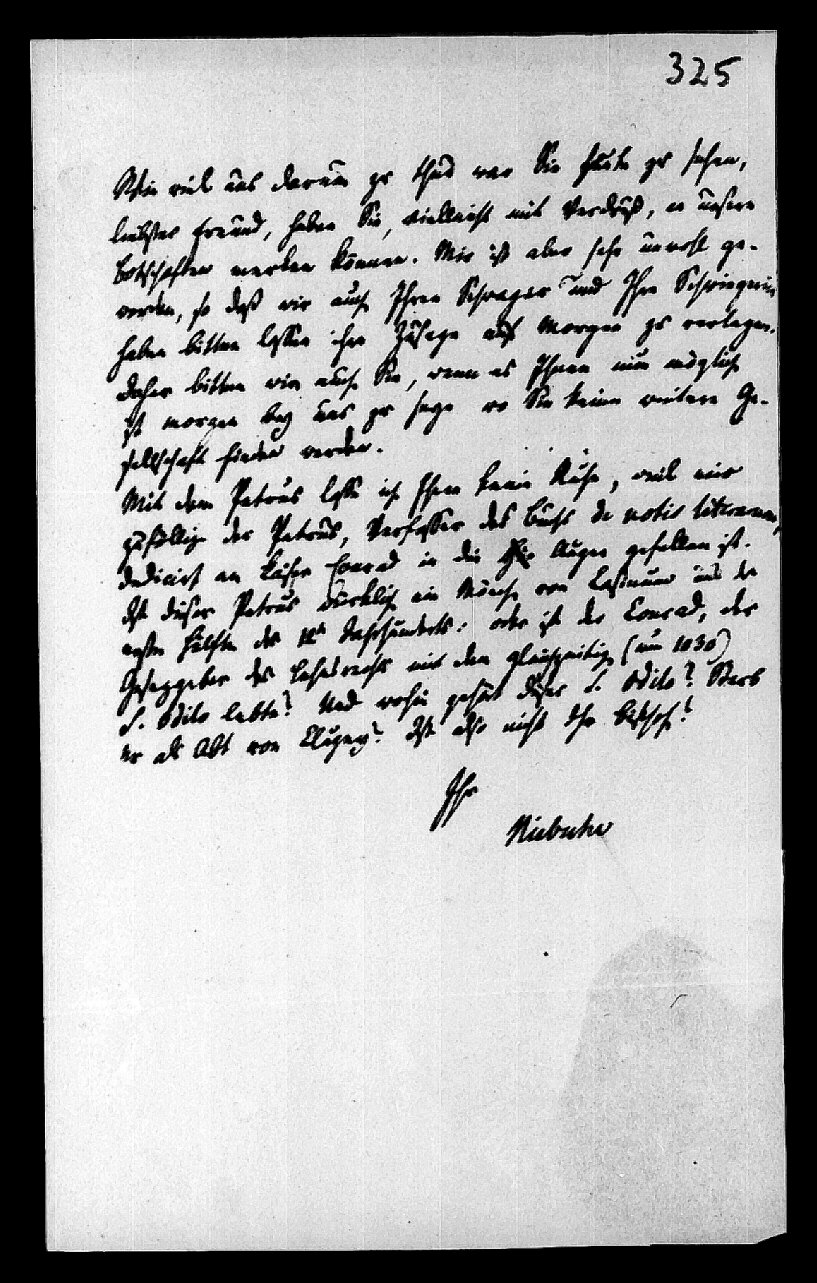 325
Wie viel uns darum zu thun war Sie heute zu sehen,
liebster Freund, haben Sie, vielleicht mit Verdruß, an unsern
Botschaften merken können. Mir ist aber sehr unwohl ge-
worden, so daß wir auch Ihren Schwager und Ihre Schwiegerin
haben bitten lassen ihre Zusage auf Morgen zu verlegen.
Daher bitten wir auch Sie, wenn es Ihnen nun möglich
ist morgen bey uns zu seyn wo Sie keine weitere Ge-
sellschaft finden werden.
Mit dem Petrus lasse ich Ihnen keine Ruhe, weil mir
zufällig der Petrus, Verfasser des Buchs de notis litterarum,
dedicirt an Kaiser Conrad in die Augen gefallen ist.
Ist dieser Petrus wirklich ein Mönch von Casinum aus der
ersten Hälfte des 12ten Jahrhunderts: oder ist der Conrad, der
Gesezgeber des Lehnrechts mit dem gleichzeitig (um 1030)
S. Odilo lebte? Und wohin gehört dieser S. Odilo? Starb
er als Abt von Clugny? Ist also nicht Ihr Bischof?
Ihr
Niebuhr